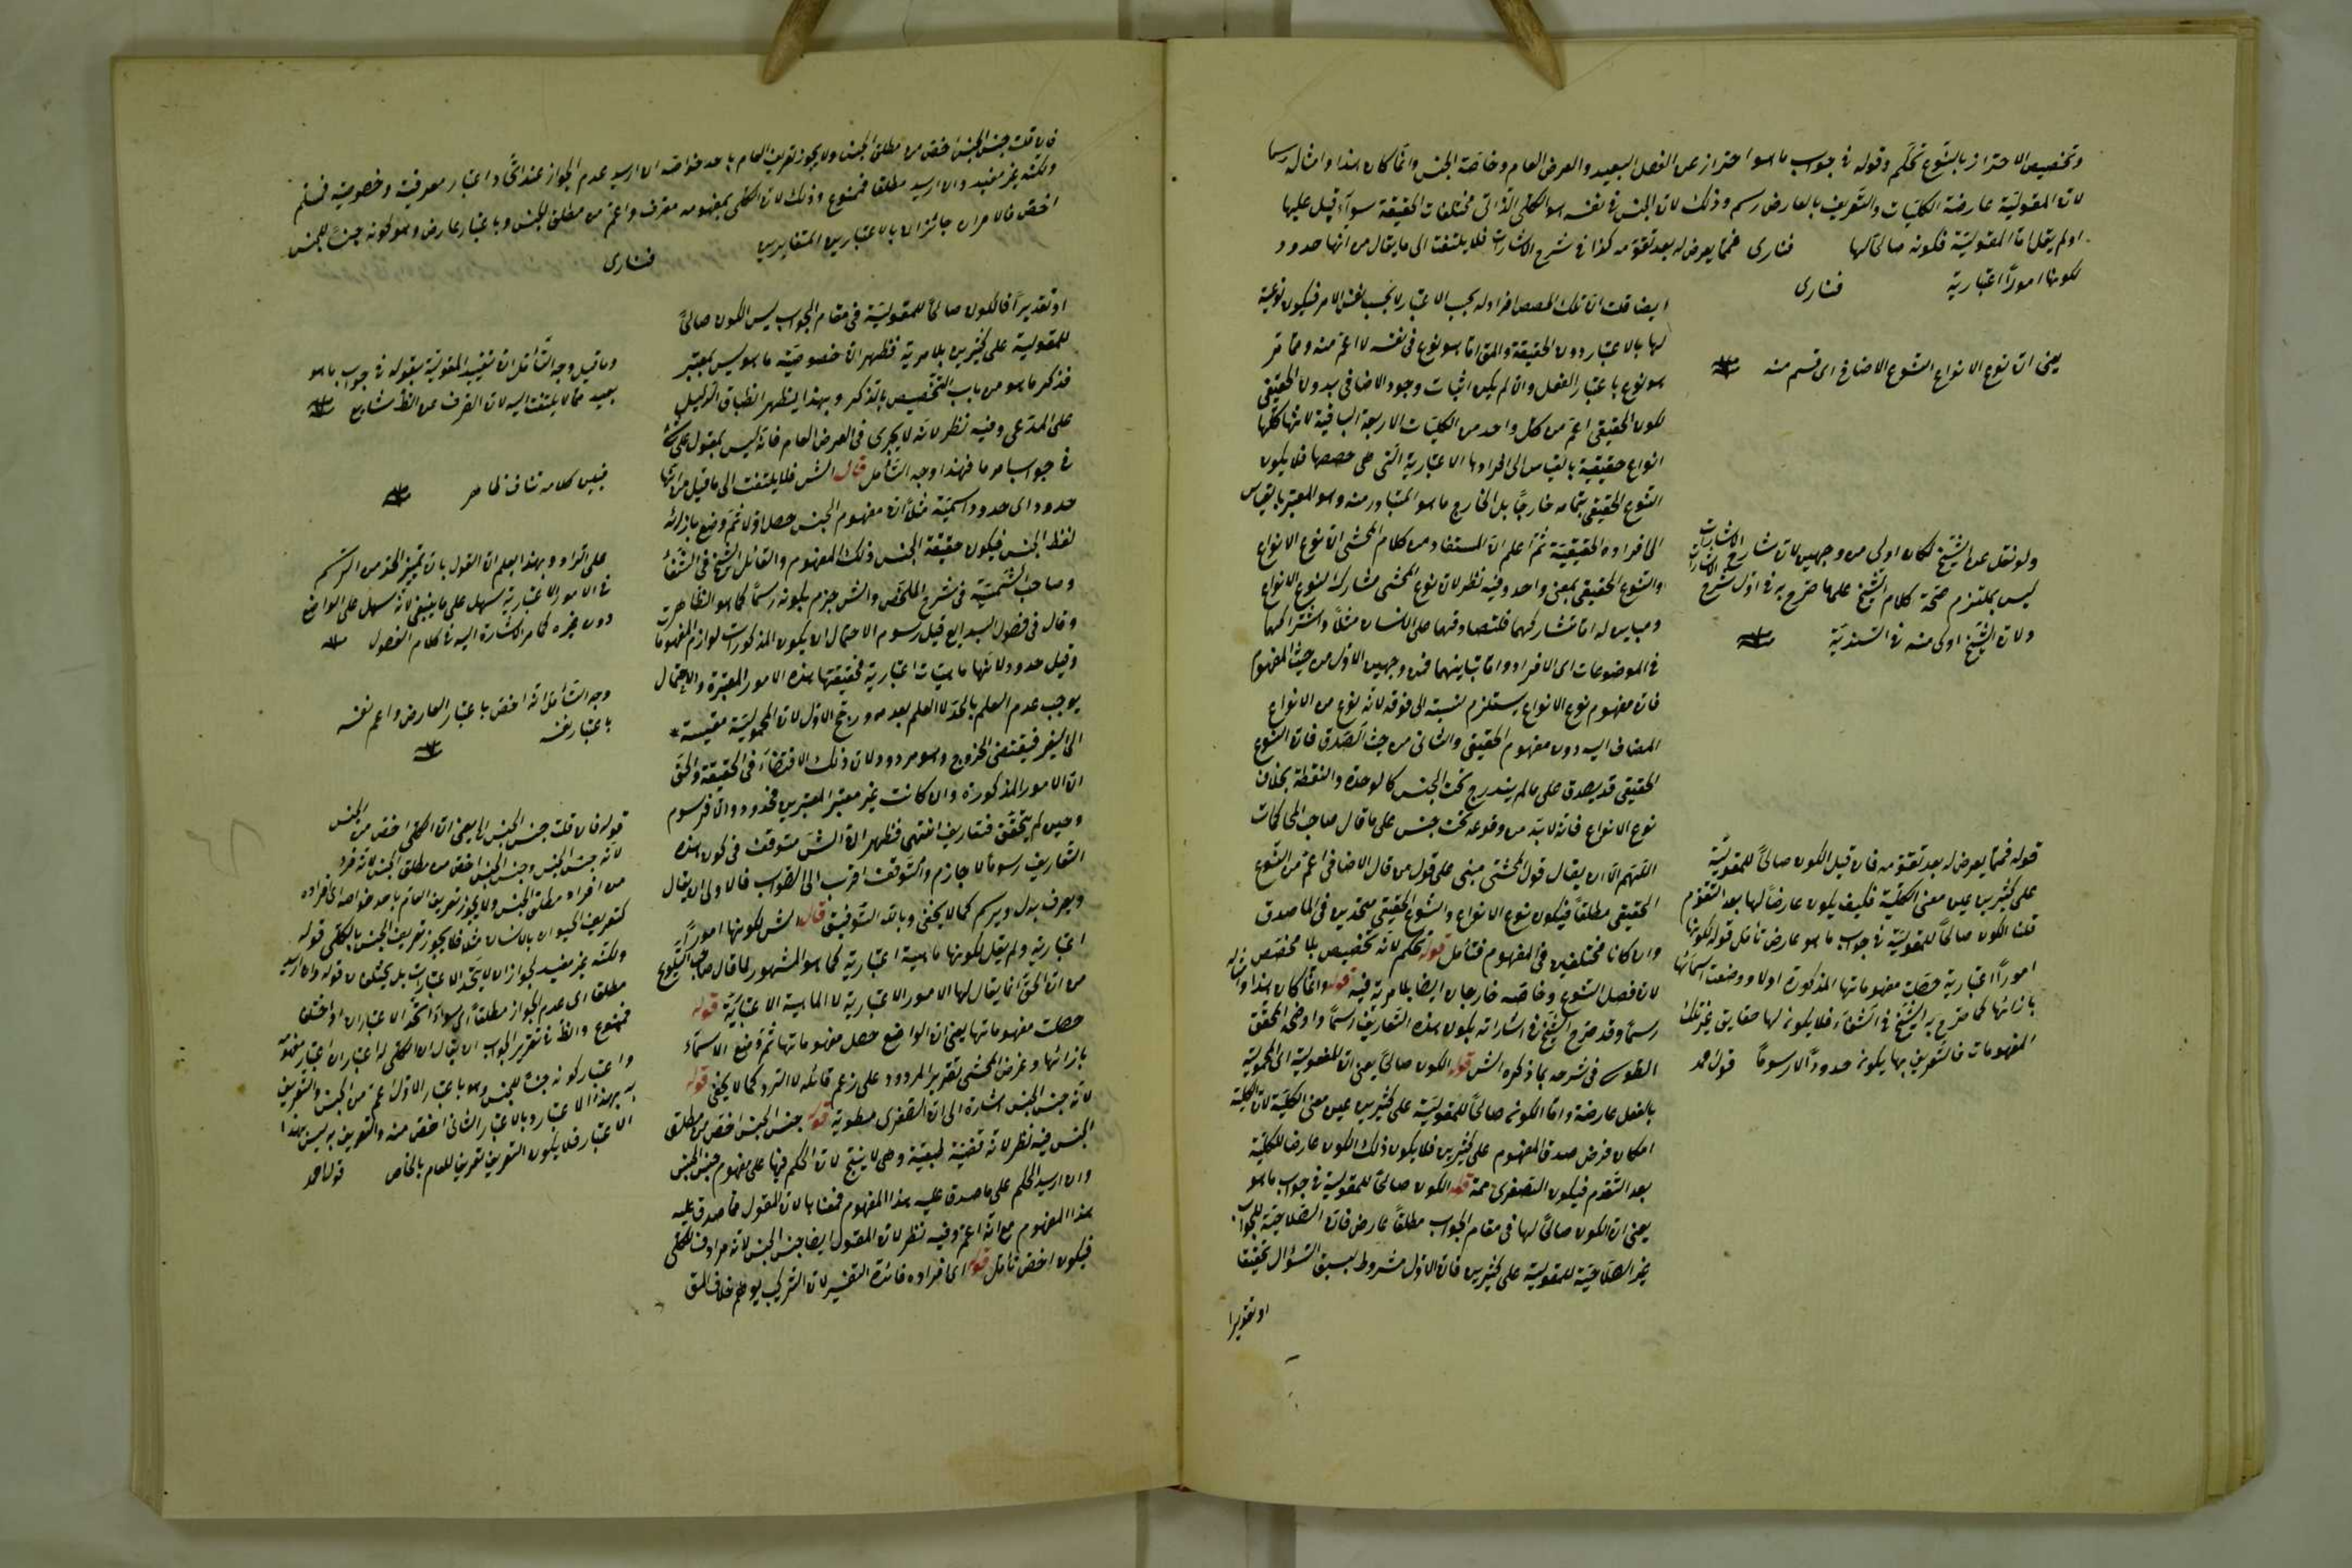 وتخصيص الاحتراز بالنوع تحكم وقوله في جواب ما هو احتراز عن الفصل البعيد والعرض العام وخاصة الجنس وانما كان هذا وامثاله رسما
لان المقولية عارضة الكليات والتعريف بالعارض رسم وذلك لان الجنس في نفسه هو الكلي الذاتي لمختلفات الحقيقة سواء قيل عليها
او لم يقل اما المقولية فكونه صالحا لها فنارى فمما يعرض له بعد تقومه كذا في شرح الاشارات فلا يلتفت الى ما يقال من انها حدود
لكونها امورا اعتبارية فنارى
ايضا قلت ان تلك الحصص افراد له بحسب الاعتبار لا بحسب نفس الامر فيكون نوعية
لها بالاعتبار دون الحقيقة والمق اما هو نوع في نفسه لا اعم منه ومما مر
هو نوع باعتبار الفعل وان لم يكن اثبات وجود الاضافي بدون الحقيقي
لكون الحقيقي اعم من كل واحد من الكليات الاربعة الباقية لانها كلها
انواع حقيقية بالقياس الى افرادها الاعتبارية التي هي حصصها فلا يكون
النوع الحقيقي بتمامه خارجا بل الخارج ما هو المتبادر منه وهو المعتبر بالقياس
الى افراده الحقيقية ثم اعلم ان المستفاد من كلام المحشى ان نوع الانواع
والنوع الحقيقي بمعنى واحد وفيه نظر لان نوع المحشى مشارك لنوع الانواع
ومباين له اما تشاركهما فلتصادقهما على الانسان مثلا واشتراكهما
في الموضوعات اى الافراد واما تباينهما فمن وجهين الاول من حيث المفهوم
فان مفهوم نوع الانواع يستلزم نسبته الى فوقه لانه نوع من الانواع
المضاف اليه دون مفهوم الحقيقي والثاني من حيث الصدق فان النوع
الحقيقي قد يصدق على ما لم يندرج تحت الجنس كالوحدة والنقطة بخلاف
نوع الانواع فانه لا بد من وقوعه تحت جنس على ما قال صاحب المحاكمات
اللهم الا ان يقال قول المحشى مبني على قول من قال الاضافي اعم من النوع
الحقيقي مطلقا فيكون نوع الانواع والنوع الحقيقي متحدين في الماصدق
وان كانا مختلفين في المفهوم فتأمل قوله تحكم لانه تخصيص بلا مخصص
لان فصل النوع وخاصته خارجان ايضا بلا مرية فيه قوله وانما كان هذا وامثاله
رسما وقد صرح الشيخ في اشاراته بكون هذه التعاريف رسما واوضحه المحقق
الطوسي في شرحه بما ذكره الش قوله الكون صالحا يعني ان المقولية اى المحمولية
بالفعل عارضة واما الكونه صالحا للمقولية على كثيرين عين معنى الكلية لان الكلية
امكان فرض صدق المفهوم على كثيرين فلا يكون ذلك الكون عارضا للكلية
بعد التقوم فيكون الصغرى مم قوله الكون صالحا للمقولية في جواب ما هو
يعني ان الكون صالحا لها في مقام الجواب مطلقا عارض فان الصلاحية للجواب
غير الصلاحية للمقولية على كثيرين فان الاول مشروط بسبق السؤال تحقيقا
او تقديرا
يعني ان نوع الانواع النوع الاضافي اى قسم منه
ولو نقل عن الشيخ لكان اولى من وجهين لان شارح الاشارات
ليس بملتزم صحة كلام الشيخ على ما صرح به في اول شرح الاشارات
ولان الشيخ اولى منه في السندية
قوله فمما يعرض له بعد تقومه فان قيل الكون صالحا للمقولية
على كثيرين عين معنى الكلية فكيف يكون عارضا لها بعد التقوم
قلنا الكون صالحا للمقولية في جواب ما هو عارض تأمل قوله لكونها
امورا اعتبارية حصلت مفهوماتها المذكورة اولا ووضعت اسمائها
بازائها كما صرح به الشيخ في الشفاء فلا يكون لها حقايق غير تلك
المفهومات فالتعريف بها يكون حدودا لا رسوما قول احمد
فان قلت جنس الجنس اخص من مطلق الجنس ولا يجوز تعريف العام باحد خواصه ان اريد عدم الجواز عند اتحاد اعتبار معرفيته وخصوصيته فمسلم
ولكنه غير مفيد وان اريد مطلقا فممنوع وذلك لان الكلي بمفهومه معرف واعم من مطلق الجنس وباعتبار عارض وهو كونه جنسا للجنس
اخص فالامران جائزان بالاعتبارين المتغايرين فنارى
او تقديرا فالكون صالحا للمقولية في مقام الجواب ليس الكون صالحا
للمقولية على كثيرين بلا مرية فظهر ان خصوصية ما هو ليس بمعتبر
فذكر ما هو من باب التخصيص بالذكر وبهذا يظهر انطباق الدليل
على المدعى وفيه نظر لانه لا يجرى في العرض العام فانه ليس بمقول على شئ
في جواب ما هو فهذا وجه التأمل قال الش فلا يلتفت الى ما قيل من انها
حدود اى حدود اسمية مثلا ان مفهوم الجنس حصل اولا ثم وضع بازائه
لفظ الجنس فيكون حقيقة الجنس ذلك المفهوم والقائل الشيخ في الشفاء
وصاحب الشمسية في شرح الملخص والش جزم بكونه رسما كما هو الظاهر
وقال في فصول البدايع قيل رسوم لاحتمال ان يكون المذكورات لوازم المفهومات
وقيل حدود لانها ماهيات اعتبارية فحقيقتها هذه الامور المعتبرة والاحتمال
يوجب عدم العلم بالحد لا العلم بعدمه ورجح الاول لان المحمولية مقيسة
الى الغير فيقتضي الخروج وهو مردود لان ذلك الاقتضاء في الحقيقة والحق
ان الامور المذكورة وان كانت غير معتبر المعتبرين فحدود والا فرسوم
وحين لم يتحقق فتعاريف انتهى فظهر ان الش متوقف في كون هذه
التعاريف رسوما لا جازم والتوقف اقرب الى الصواب فالاولى ان يقال
ويعرف بدل ويرسم كما لا يخفى وبالله التوفيق قال الش لكونها امورا
اعتبارية ولم يقل لكونها ماهية اعتبارية كما هو المشهور لما قال صاحب التلويح
من ان الحق انما يقال لها الامور الاعتبارية لا الماهية الاعتبارية قوله
حصلت مفهوماتها يعني ان الواضع حصل مفهوماتها ثم وضع الاسماء
بازائها وغرض المحشى تقرير المردود على زعم قائله لا الرد كما لا يخفى قوله
لانه جنس الجنس اشارة الى ان الصغرى مطوية قوله جنس الجنس اخص من مطلق
الجنس فيه نظر لانه قضية طبيعية وهي لا ينتج لان الحكم فيها على مفهوم جنس الجنس
وان اريد الحكم على ما صدق عليه هذا المفهوم فمعناه لان المقول مما صدق عليه
هذا المفهوم مع انه اعم وفيه نظر لان المقول ايضا جنس الجنس لانه مرادف للكلي
فيكون اخص تأمل قوله اى افراده فائدة التفسير لان التركيب يوهم خلاف المق
وما قيل وجه التأمل ان تقييد المقولية بقوله في جواب ما هو
بعيد مما لا يلتفت اليه لان الصرف عن الظ شايع
فبين كلامه تناف ظاهر
وبهذا يعلم ان القول بان تمييز الحد من الرسم
في الامور الاعتبارية سهل على ما ينبغي لانه سهل على الواضع
دون غيره كما مر الاشارة اليه في كلام الفصول
وجه التأمل انه اخص باعتبار العارض واعم نفسه
باعتبار نفسه
قوله فان قلت جنس الجنس الخ يعني ان الكلي اخص من الجنس
لانه جنس الجنس وجنس الجنس اخص من مطلق الجنس لانه فرد
من افراد مطلق الجنس ولا يجوز تعريف العام باحد خواصه اى افراده
كتعريف الحيوان بالانسان مثلا فلا يجوز تعريف الجنس بالكلي قوله
ولكنه غير مفيد لجواز ان لا يتحد الاعتبارات بل يختلفان قوله وان اريد
مطلقا اى عدم الجواز مطلقا اى سواء اتحد الاعتباران او اختلفا
فممنوع والظ في تقرير الجواب ان يقال ان الكلي له اعتباران اعتبار مفهومه
واعتبار كونه جنسا للجنس وهو باعتبار الاول اعم من الجنس والتعريف
به بهذا الاعتبار وبالاعتبار الثاني اخص منه والتعريف به ليس بهذا
الاعتبار فلا يكون التعريف تعريفا للعام بالخاص قول احمد